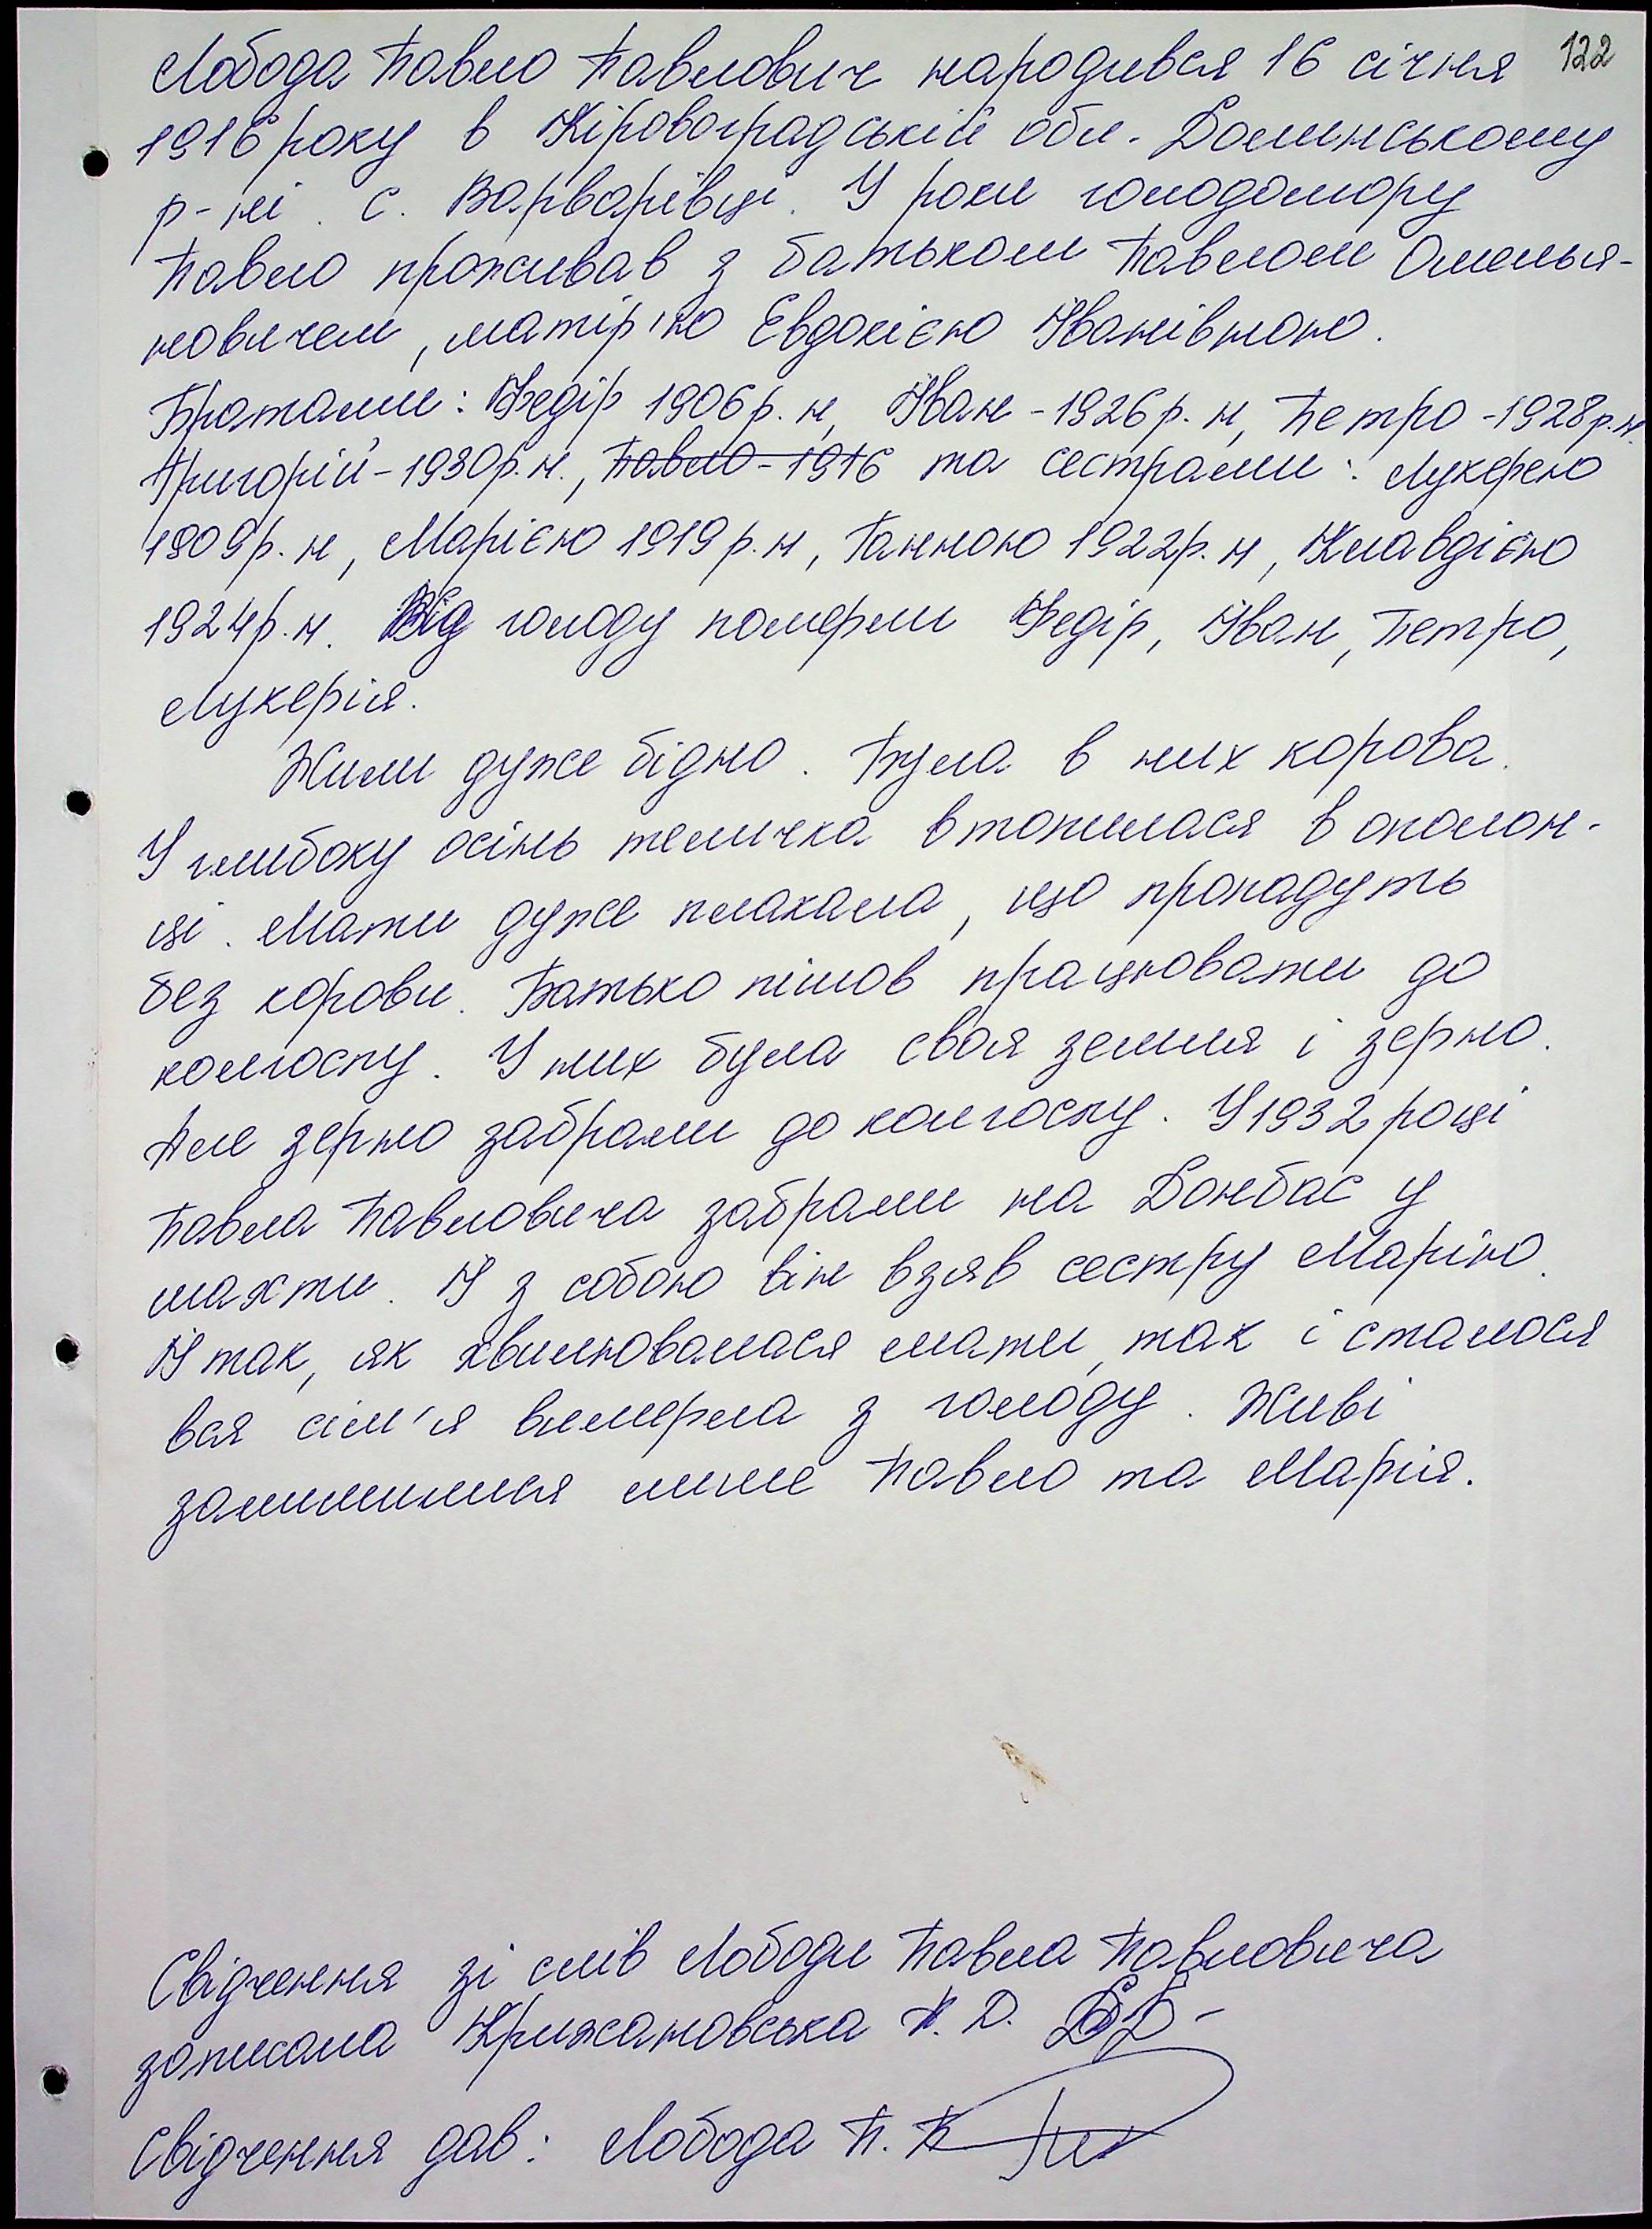 122
Лобода Павло Павлович народився 16 січня
1916 року в Кіровоградській обл. Долинському
р-ні. с. Варварівці. У роки голодомору
Павло проживав з батьком Павлом Омелья-
новичем, матір'ю Евдокією Іванівною.
Братами: Федір 1906 р. н, Іван - 1926 р. н, Петро - 1928 р. н.
Григорій - 1930 р. н., Павло - 1916 та сестрами: Лукерею
1909 р. н, Марією 1919 р. н, Ганною 1922 р. н, Клавдією
1924 р. н. Від голоду померли Федір, Іван, Петро,
Лукерія.
Жили дуже бідно. Була в них корова.
У глибоку осінь теличка втопилася в ополон-
ці. Мати дуже плакала, що пропадуть
без корови. Батько пішов працювати до
колгоспу. У них була своя земля і зерно.
Але зерно забрали до колгоспу. У 1932 році
Павла Павловича забрали на Донбас у
шахти. І з собою він взяв сестру Марію.
І так, як хвилювалася мати, так і сталося
вся сім'я вимерла з голоду. Живі
залишилися лише Павло та Марія.
Свідчення зі слів Лободи Павла Павловича
записала Крижановська Д.
Свідчення дав: Лобода П. П.